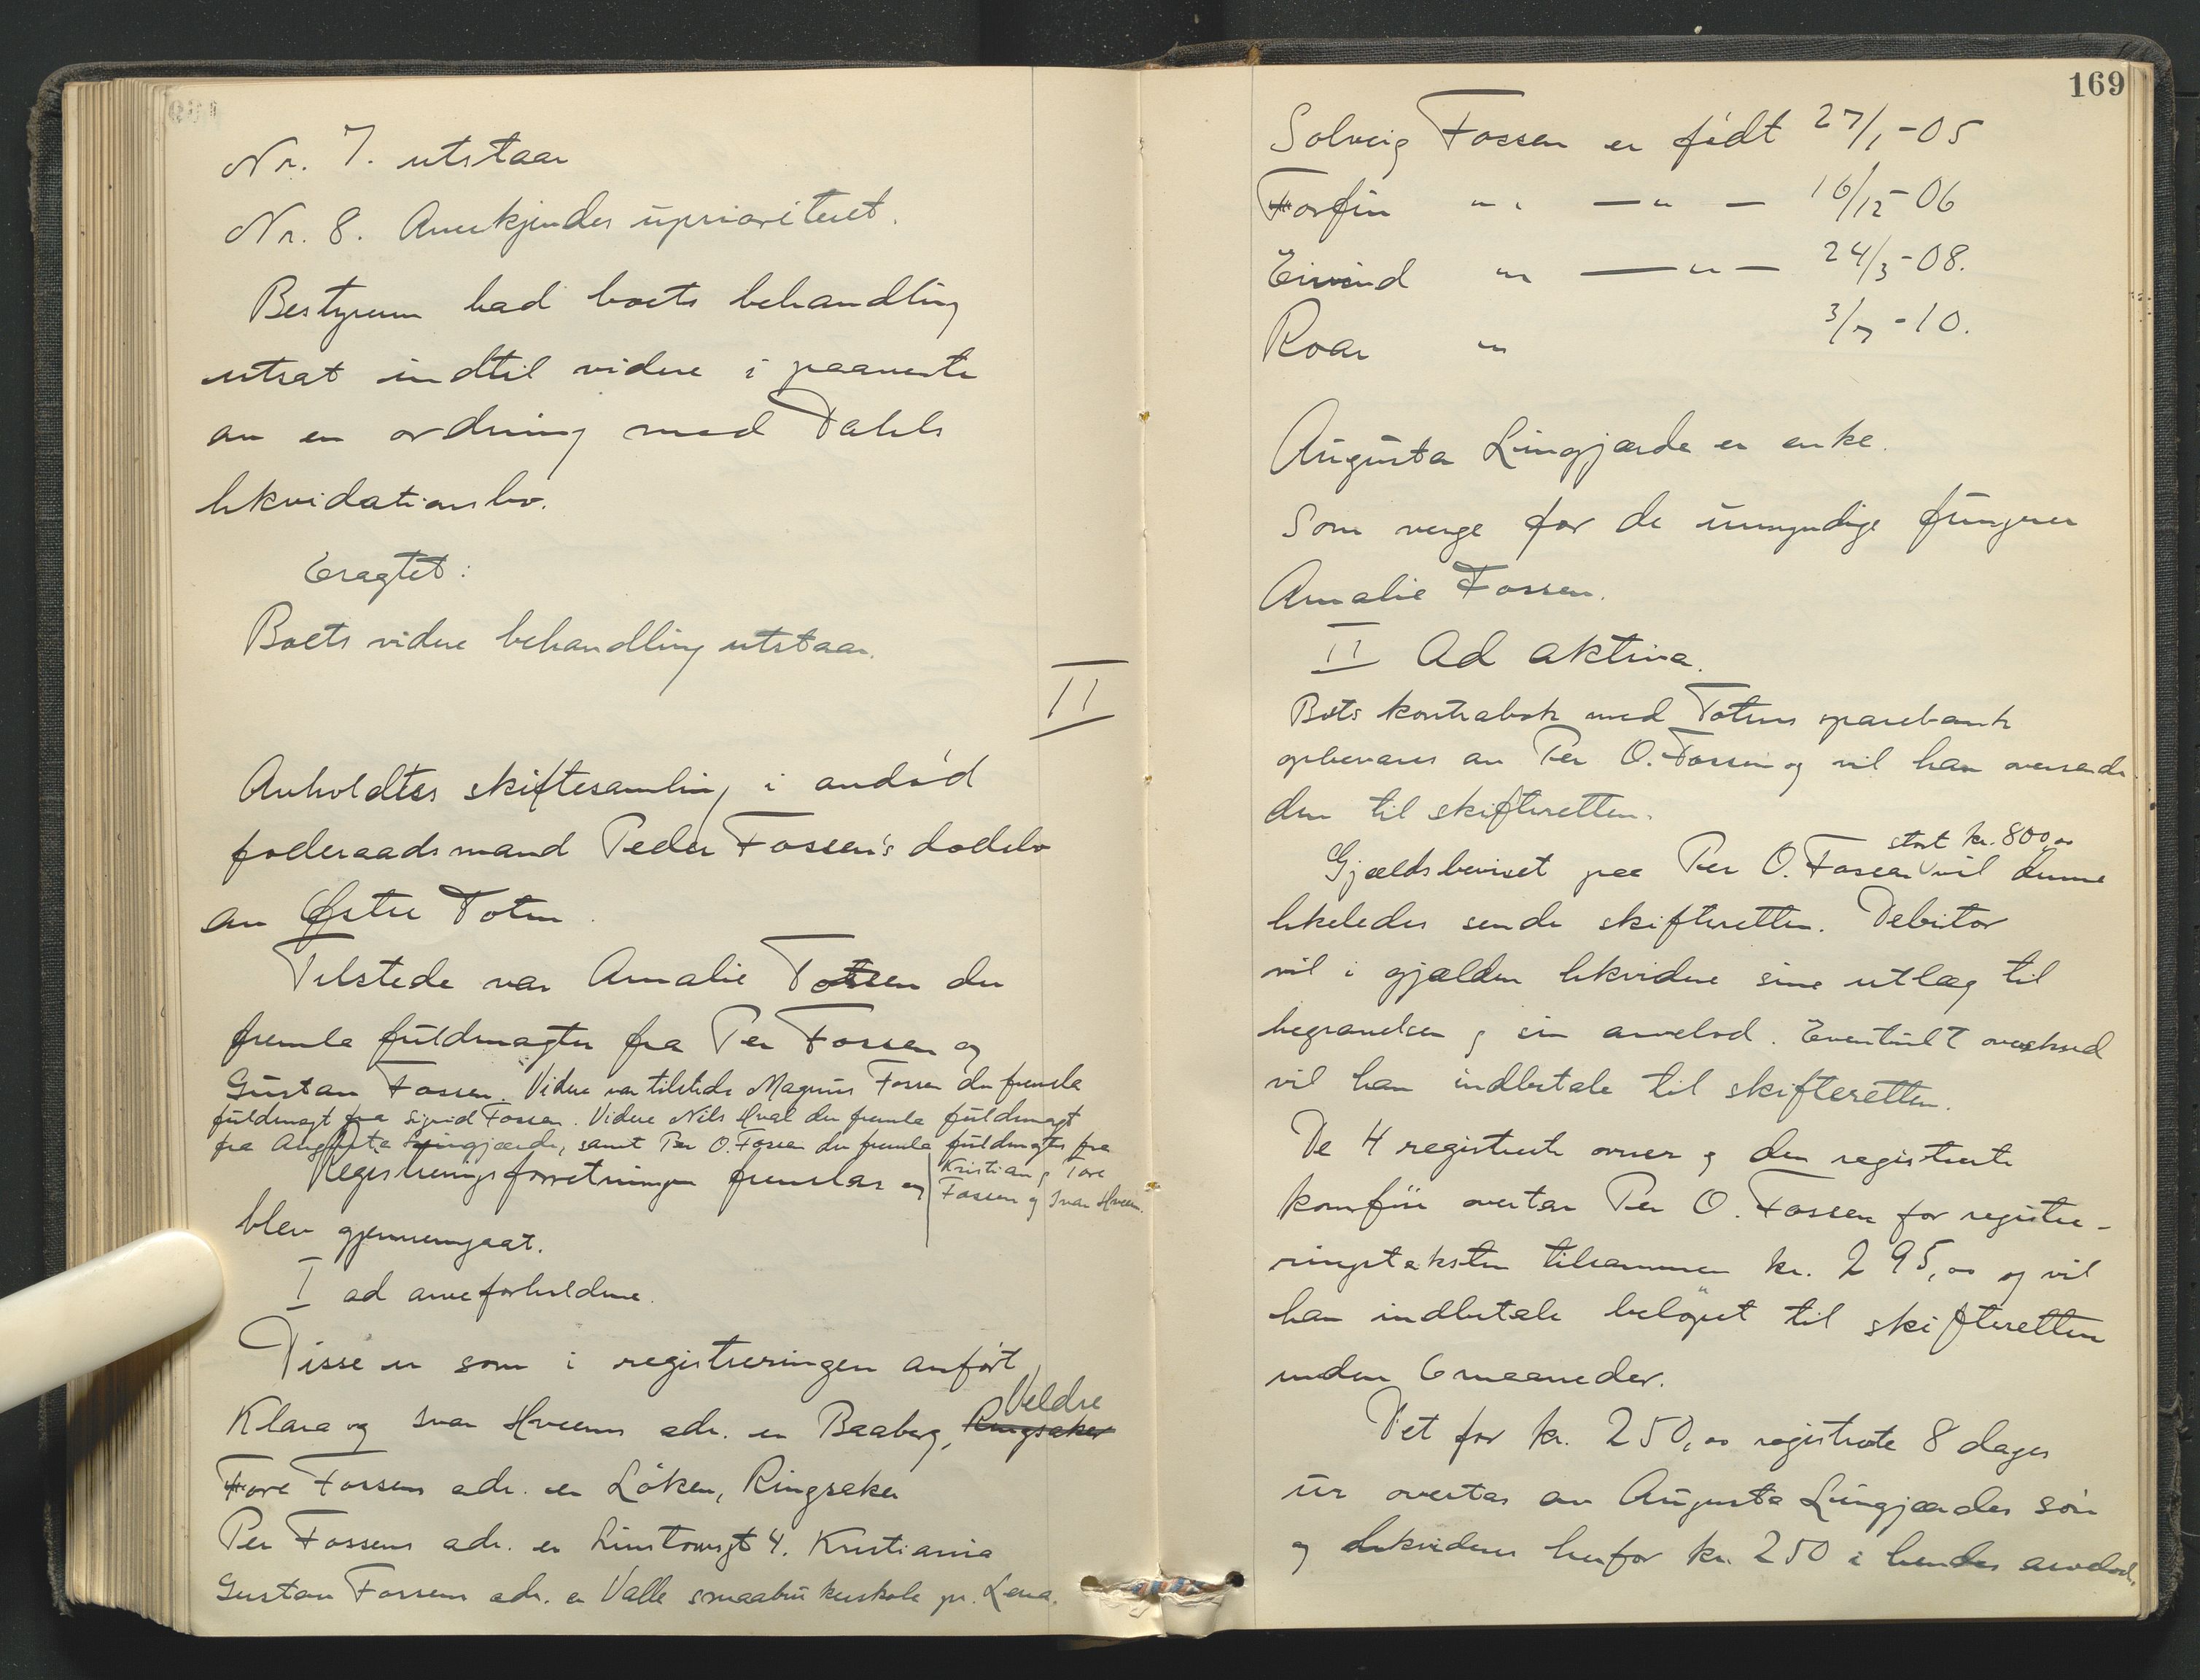 Nr. 7. utstaar
Nr. 8. Anerkjendes uprioritert.
Bestyreren bad boets behandling
utsat indtil videre i paavente
av en ordning med Dahls
likvidationsbo.
Eragtet:
Boets videre behandling utstaar.
II
Avholdtes skiftesamling i avdød
føderaadsmand Peder Fossen's dødsbo
av Østre Toten.
Tilstede var Amalie Fossen der
fremla fuldmagter fra Per Fossen og
Gustav Fossen. Videre var tilstede Magnus Fossen der fremla
fuldmagt fra Sigrid Fossen. Videre Nils Hval der fremla fuldmagt
fra Augusta Lyngjærde, samt Per O. Fossen der fremla fuldmagter fra
Kristian og Tore
Fossen og Ivar Hveem.
Registreringsforretningen fremlaa og
blev gjennemgaat.
I ad arveforholdene.
Disse er som i registreringen anført
Klara og Ivar Hveems adr. er Baaberg, Ringsaker Veldre
Tore Fossens adr. er Løken, Ringsaker
Per Fossens adr. er Linstowsgt 4. Kristiania
Gustav Fossens adr. er Valle smaabrukerskole pr. Lena.
169
Solveig Fossen er født 27/1 -05
Torfin " — " — 16/12 -06
Eivind " — " — 24/3 -08.
Roar " 3/7 -10.
Augusta Lingjærde er enke.
Som verge for de umyndige fungerer
Amalie Fossen.
II Ad aktiva.
Bots kontrabok med Totens sparebank
opbevares av Per O. Fossen og vil han oversende
den til skifteretten.
Gjældsbeviset paa Per O. Fossen stort kr. 800,00 vil denne
likeledes sende skifteretten. Debitor
vil i gjælden likvidere sine utlæg til
begravelsen og sin arvelod. Eventuelt overskud
vil han indbetale til skifteretten.
De 4 registrerte ovner og den registrerte
komfür overtar Per O. Fossen for registre-
ringstaksten tilsammen kr. 295,00 og vil
han indbetale beløpet til skifteretten
inden 6 maaneder.
Det for kr. 250,00 registrerte 8 dages
ur overtas av Augusta Lingjærdes søn
og likvideres herfor kr. 250 i hendes arvelod.